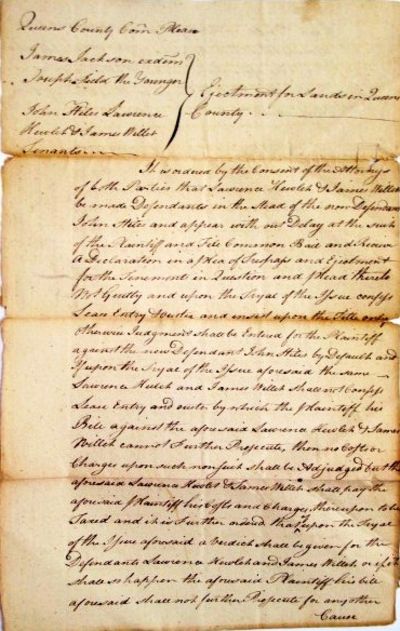 Queens County Com Pleas
James Jackson ex dem
Joseph Field the Younger
Ejectment for Lands in Queens
County
John Stiles Lawrence
Hewlet & James Willet
Tenants
It is ordered by the Consent of the Attorneys
of both Parties that Lawrence Hewlet & James Willet
be made Defendants in the Stead of the now Defendant
John Stiles and appear with out Delay at the suit
of the Plaintiff and File Common Bail and Receive
A Declaration in a Plea of Trespass and Ejectment
for the Tenements in Question and plead thereto
Not Guilty and upon the Tryal of the Issue confess
Lease Entry & ouster and insist upon the Title only
otherwise Judgment shall be Entered for the Plaintiff
against the now Defendant John Stiles by Default and
If upon the Tryal of the Issue aforesaid the same
Lawrence Hulet and James Willet shall not Confess
Lease Entry and ouster by which the Plaintiff his
Bill against the aforesaid Lawrence Hewlet & James
Willet cannot Further Prosecute, then no Costs or
Charges upon such nonsuit shall be Adjudged but the
aforesaid Lawrence Hewlet & James Willet shall pay the
aforesaid Plaintiff his Costs and Charges thereupon to be
Taxed and it is Further ordered that if upon the Tryal
of the Issue aforesaid a verdict shall be given for the
Defendants Lawrence Hewlet and James Willet, or if it
shall so happen the aforesaid Plaintiff his bill
aforesaid shall not further Prosecute for any other
Cause